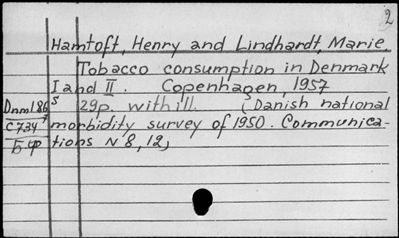 2
Hamtoft, Henry and Lindhardt, Marie.
Tobacco consumption in Denmark
I and II. Copenhagen, 1957
Dnm186 s 29p. with ill. (Danish national
C734 morbidity survey of 1950. Communica-
Бф tions N 8, 12)